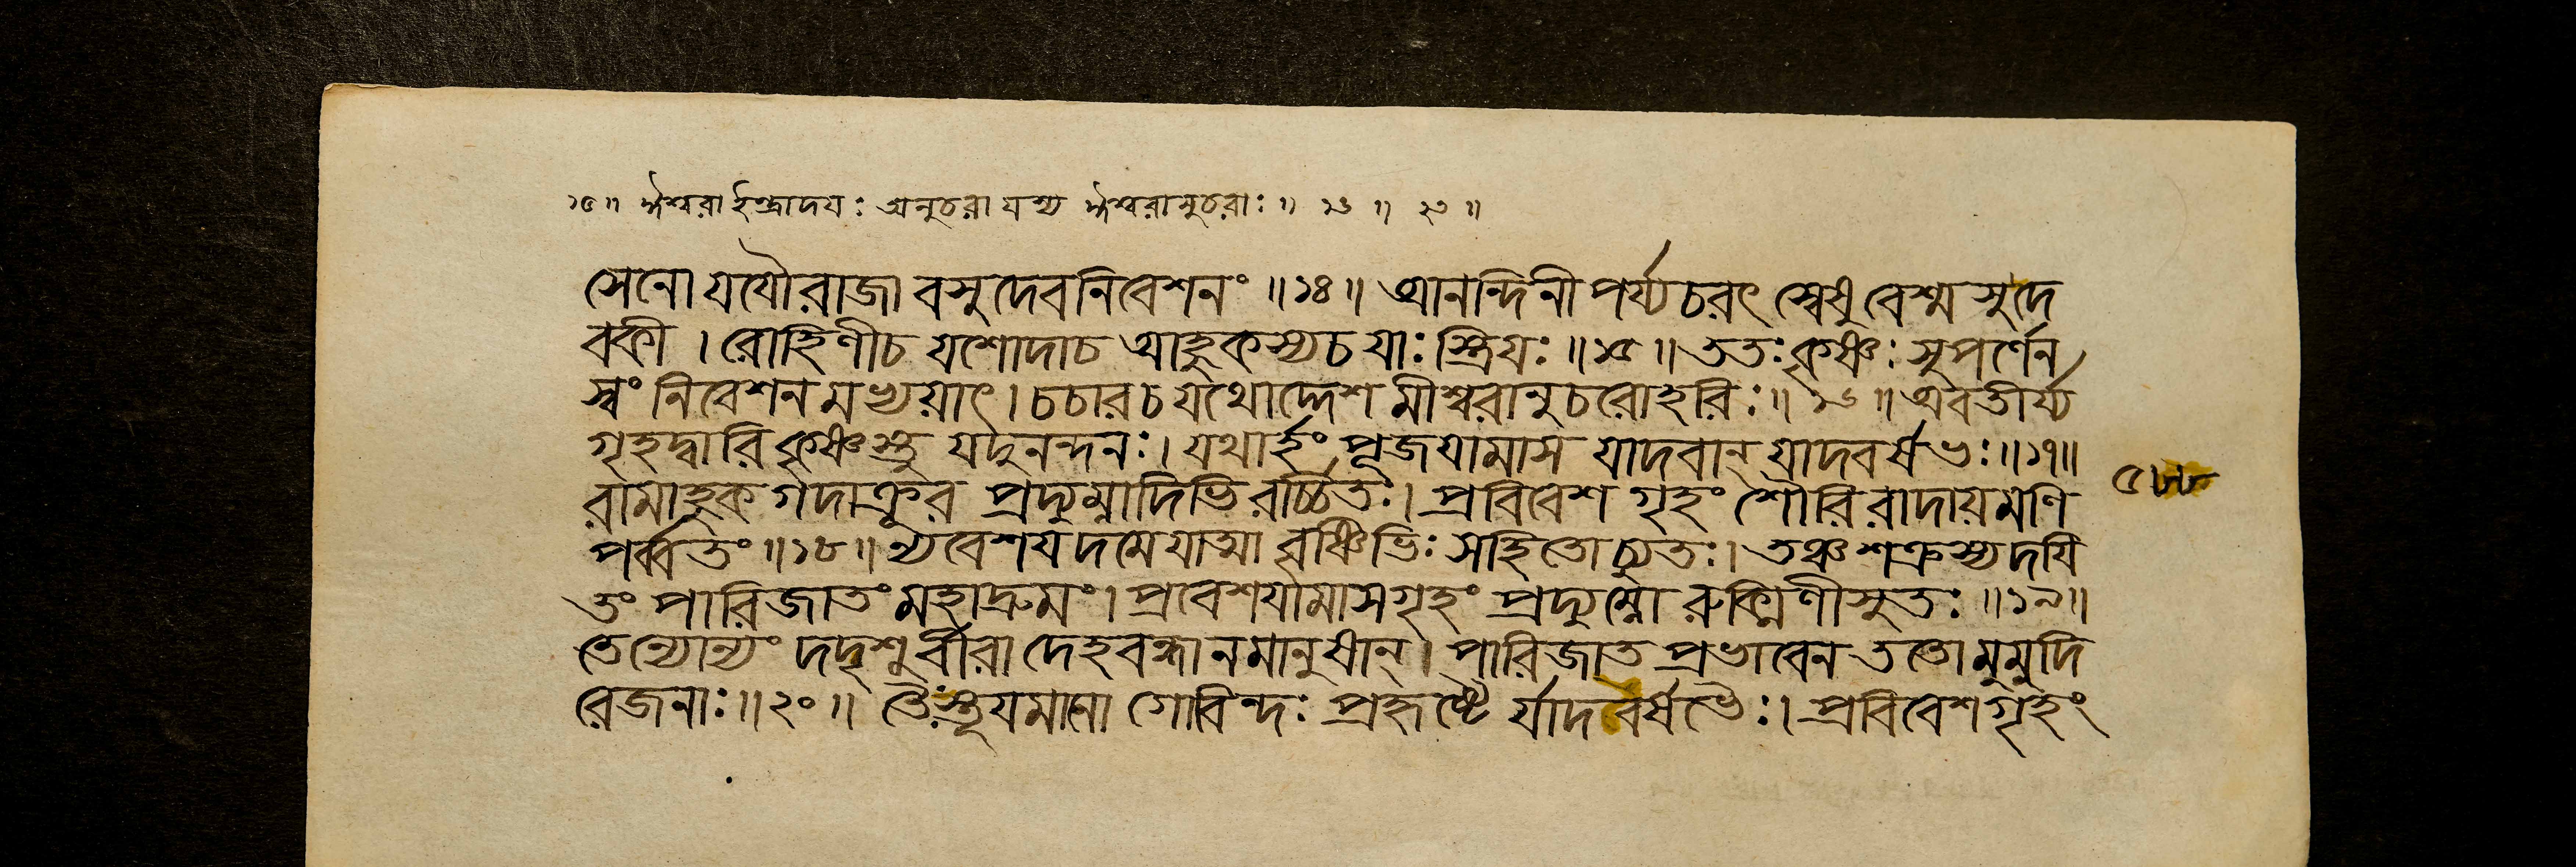 ১৫॥ ঈশ্বরা ইন্দ্রাদয়ঃ অনুচরা যস্য ঈশ্বরানুচরাঃ॥ ১৬॥ ২০॥
সেনো যযৌ রাজা বসুদেবনিবেশনং॥১৪॥ আনন্দিনী পর্য্যচরৎ স্বেষু বেশ্মসু দে
বকী। রোহিণীচ যশোদাচ আহুকস্যচ যাঃ স্ত্রিয়ঃ॥১৫॥ ততঃ কৃষ্ণঃ সুপর্ণেন
স্বং নিবেশনমভ্যয়াৎ। চচারচ যথোদ্দেশমীশ্বরানুচরোহরিঃ॥১৬॥ অবতীর্য্য
গৃহদ্বারি কৃষ্ণস্তু যদুনন্দনঃ। যথার্হং পূজয়ামাস যাদবান্ যাদবর্ষভঃ॥১৭॥
রামাহুক গদাক্রূর প্রদ্যুম্নাদিভিরর্চ্চিতঃ। প্রবিবেশ গৃহং শৌরিরাদায়মণি
পর্ব্বতং॥১৮॥ ন্যবেশয়দমেয়াত্মা বৃষ্ণিভিঃ সহিতোচ্যুতঃ। তঞ্চ শক্রস্য দয়ি
তং পারিজাতং মহাদ্রুমং। প্রবেশয়ামাস গৃহং প্রদ্যুম্নো রুক্মিণীসুতঃ॥১৯॥
তেন্যোন্যং দদৃশুর্বীরা দেহবন্ধানমানুষান্। পারিজাত প্রভাবেন ততো মুমুদি
রেজনাঃ॥২০॥ তৈঃস্তূয়মানো গোবিন্দঃ প্রহৃষ্টৈ র্যাদবর্ষভৈঃ। প্রবিবেশ গৃহং